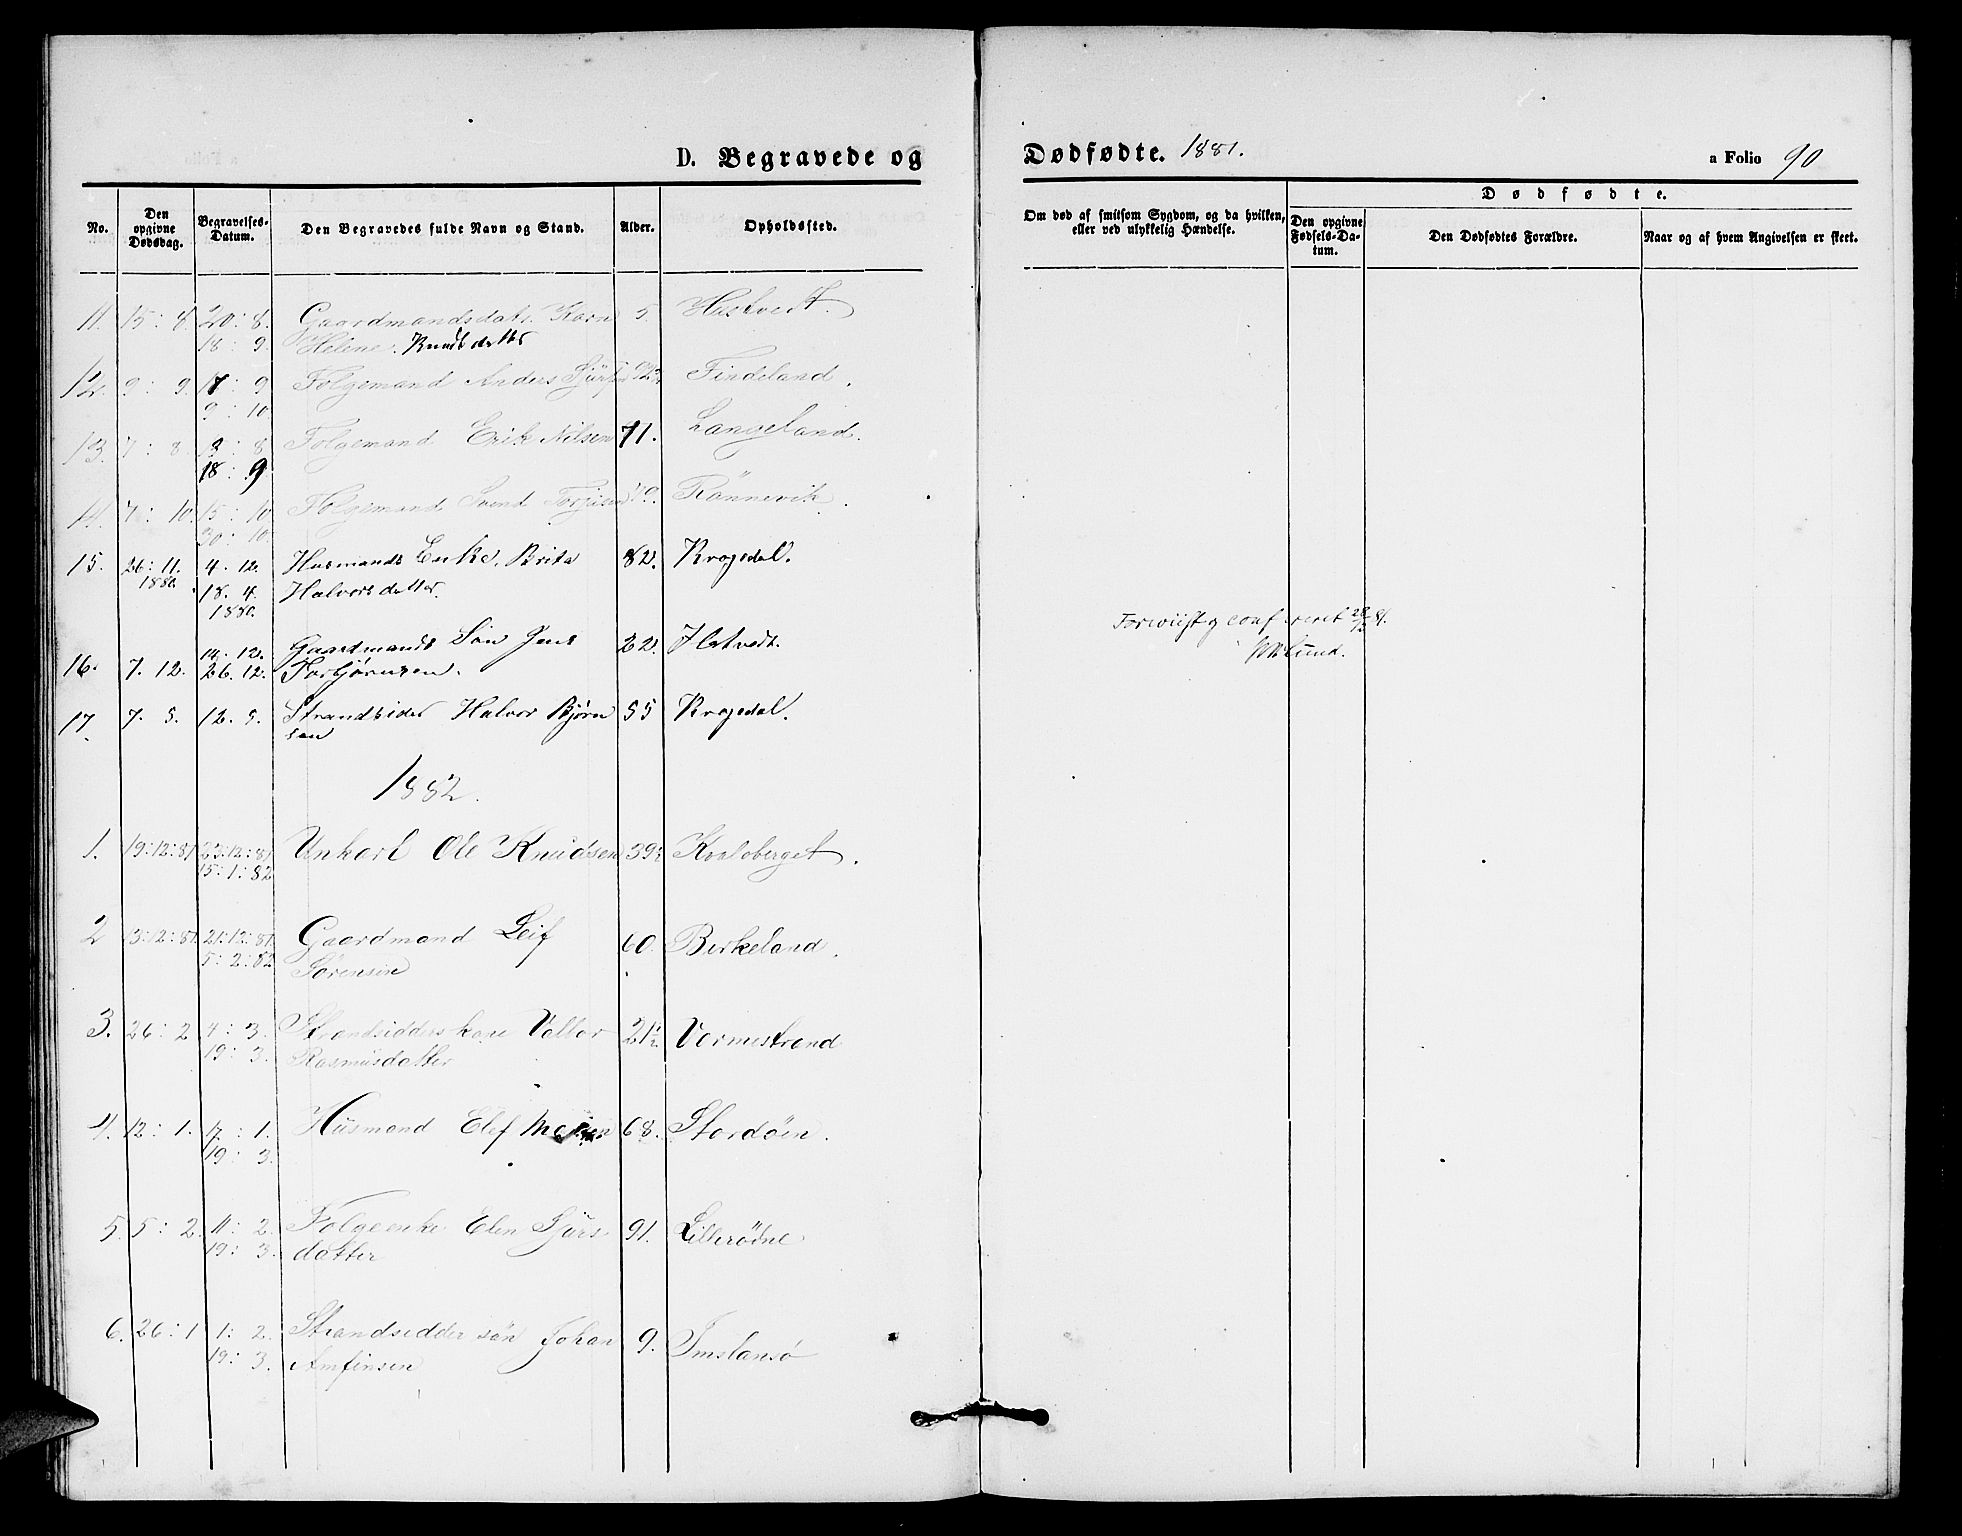 D. Begravede og
Dødfødte. 1881.
a Folio 90
No.
Den opgivne Dødsdag.
Begravelses-Datum.
Den Begravedes fulde Navn og Stand.
Alder.
Opholdssted.
Om død af smitsom Sygdom, og da hvilken, eller ved ulykkelig Hændelse.
Dødfødte.
Den opgivne Fødsels-Datum.
Den Dødfødtes Forældre.
Naar og af hvem Angivelsen er skeet.
11. 15: 8. 20: 8. Gaardmandsdatr. Karn 5. Hustvedt.
18: 9. Helene. Knudsdatter
12. 9: 9. 17: 9 Folgemand Anders 92½ Findeland.
9: 10.
13. 7: 8. 8 Folgemand Erik Nilsen 71. Langeland.
18: 9.
14. 7: 10. 15: 10. Folgemand Svend 79. Rönnevik.
30: 10.
15. 26: 11. 4. 12. Husmands Enke. Brita 82. Krogedal.
1880. 18. 4. Halvorsdatter.
1880.
14. 12. Gaardmands Søn Jens 22. Hstvedt.
16. 7. 12. 26. 12. Torbjørnsen.
17. 7. 5. 12. 5. Strandsider Halvor Bjørn 55 Krogedal.
sen
Forevist og conf ereret 28/12 81.
Lund.
1882.
1. 19:12:81 23:12:81 Unkarl Ole Knudsen 39½ Kvaloberget.
15:1:82
2 13:12:81. 21:12:81. Gaardmand Leif 60. Birkeland.
5:2:82 Sørensen
3. 26: 2 4: 3. Strandsidderskone Valbor 21½ Vormestrand
19: 3. Rasmusdatter
4. 12: 1. 17: 1. Husmand Elef 68. Stordøen.
19: 3.
5. 5: 2. 11: 2. Folgeenke Elen Sjurs 91. Lillerødne
19: 3. datter
6. 26: 1 1: 2. Strandsidder søn Johan 9. Imslansø
19: 3. Amfinsen